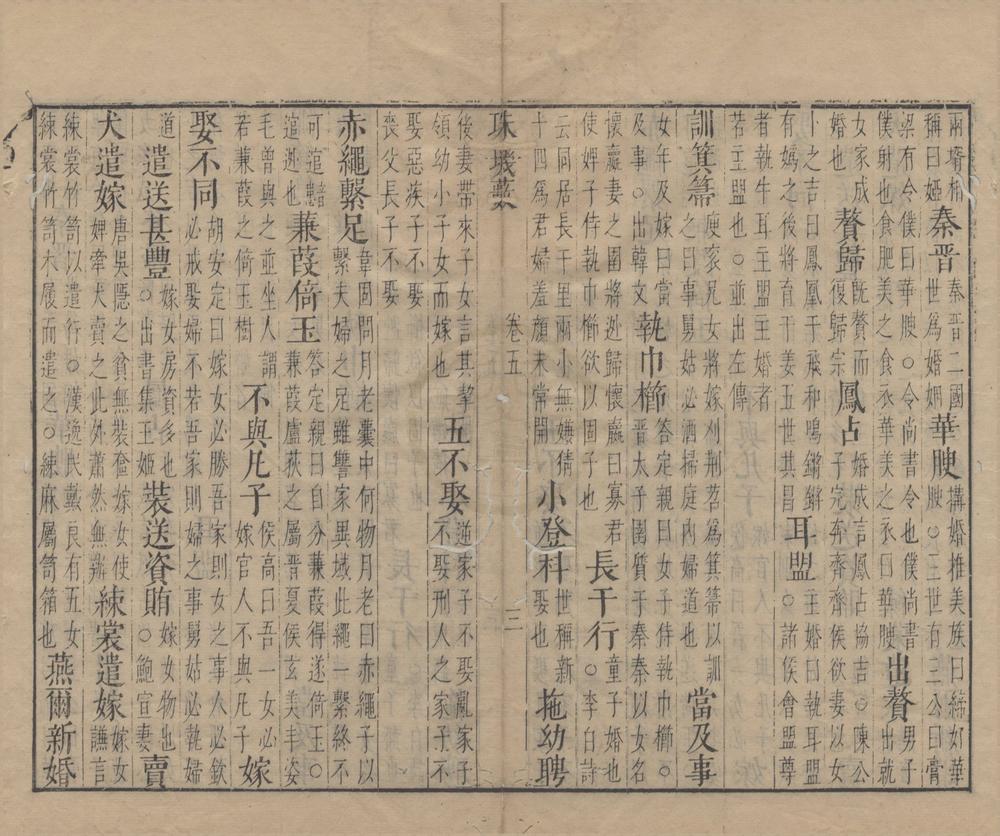 兩壻相稱曰婭秦晉秦晉二國世爲婚姻華腴搆婚推美族曰締好華腴○三世有三公曰膏
粱有令僕曰華腴○令尚書令也僕尚書僕射也食肥美之食衣華美之衣曰華腴出贅男子出就
女家成婚也贅歸既贅而復歸宗鳳占婚成言鳳占協吉○陳公子完奔齊齊侯欲妻以女
卜之吉曰鳳凰于飛和鳴鏘鏘有嬀之後將育于姜五世其昌耳盟○主婚曰執耳盟○諸侯會盟尊
者執牛耳主盟主婚者若主盟也○並出左傳
訓箕箒庾袞兄女將嫁刈荆苕爲箕箒以訓之曰事舅姑必洒掃庭內婦道也當及事
女年及嫁曰當及事○出韓文執巾櫛答定親曰女子侍執巾櫛○晋太子圉質于秦秦以女名
懷嬴妻之圉將逃歸懷嬴曰寡君使婢子侍執巾櫛欲以固子也長干行童子婚也○李白詩
云同居長干里兩小無嫌猜十四爲君婦羞顔未常開小登科世稱新娶也拖幼聘
珠璣藪 卷五 三
後妻帶來子女言其拏領幼小子女而嫁也五不娶逆家子不娶亂家子不娶刑人之家子不
娶惡疾子不娶喪父長子不娶
赤繩繫足韋固問月老囊中何物月老曰赤繩子以繫夫婦之足雖讐家異域此繩一繫終不
可逭逭音逃也蒹葭倚玉答定親曰自分蒹葭得遂倚玉○蒹葭蘆荻之屬晋夏侯玄美丰姿
毛曾與之並坐人謂若蒹葭之倚玉樹不與凡子侯高曰吾一女必嫁官人不與凡子嫁
娶不同胡安定曰嫁女必勝吾家則女之事人必欽必戒娶婦不若吾家則婦之事舅姑必執婦
道遣送甚豐嫁女房資多也○出書集王姬裝送資賄嫁女物也○鮑宣妻賣
犬遣嫁唐吳隱之貧無裝奩嫁女使婢牽犬賣之此外蕭然無辦練裳遣嫁嫁女謙言
練裳竹笥以遣行○漢逸民戴良有五女練裳竹笥木履而遣之○練麻屬笥箱也燕爾新婚